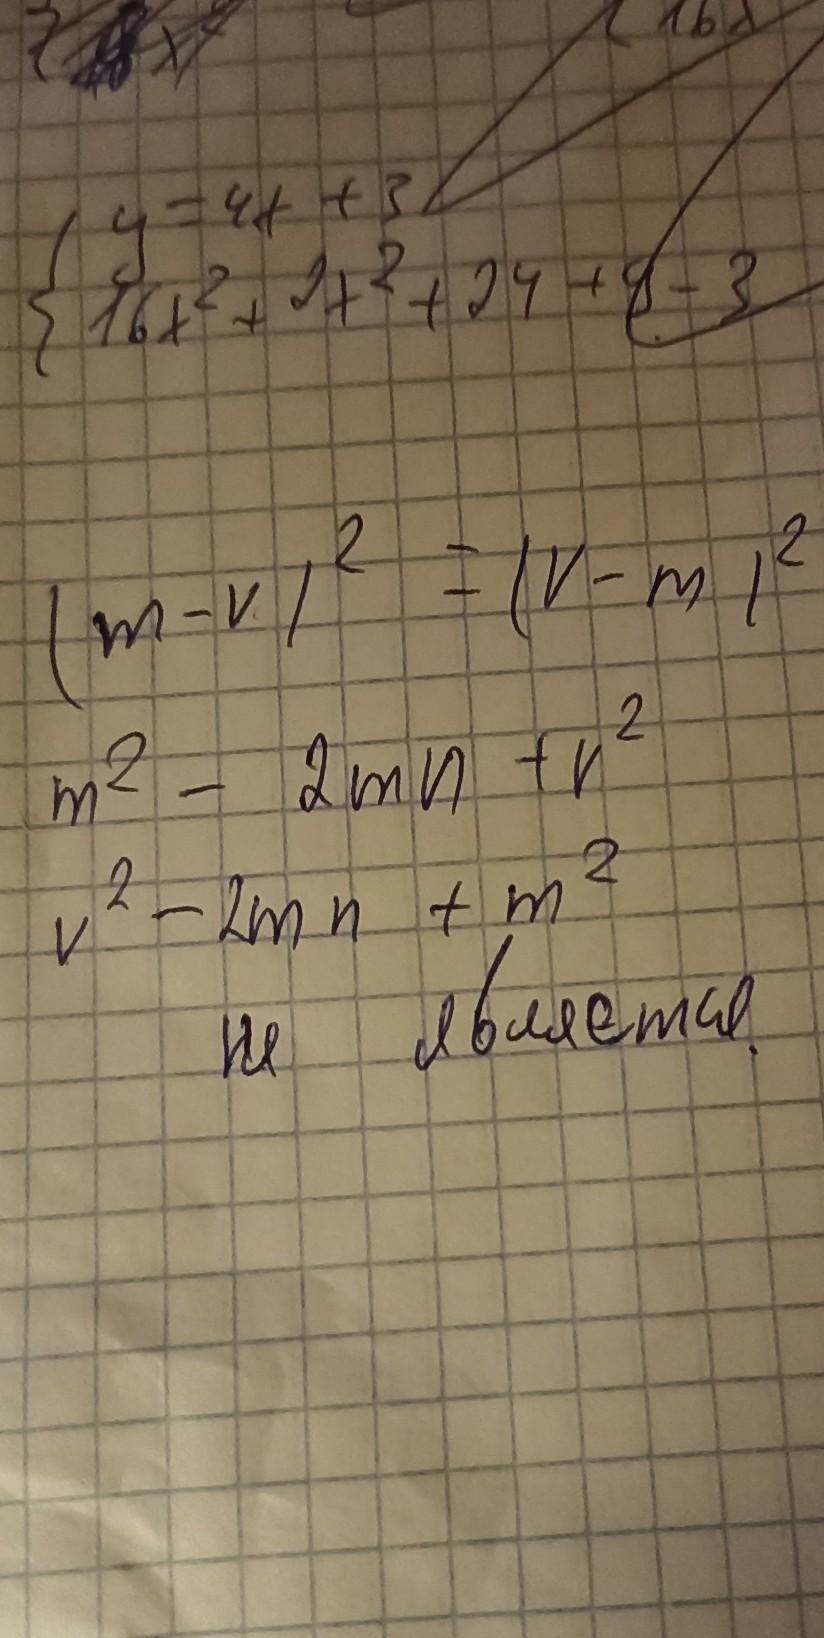 16x
y = 4x + 3
16x² + 2x² + 24 + 9 - 3
(m - v)² = (v - m)²
m² - 2mn + v²
v² - 2mn + m²
не является.